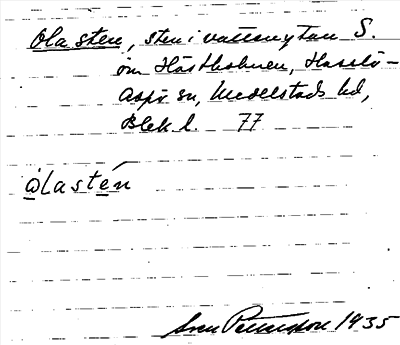 Ola sten, sten i vattenytan S.
om Hästholmen, Hasslö-
Aspö sn, Medelstads hd,
Blek. l. 77
 òlastén
Sven Pettersson 1935